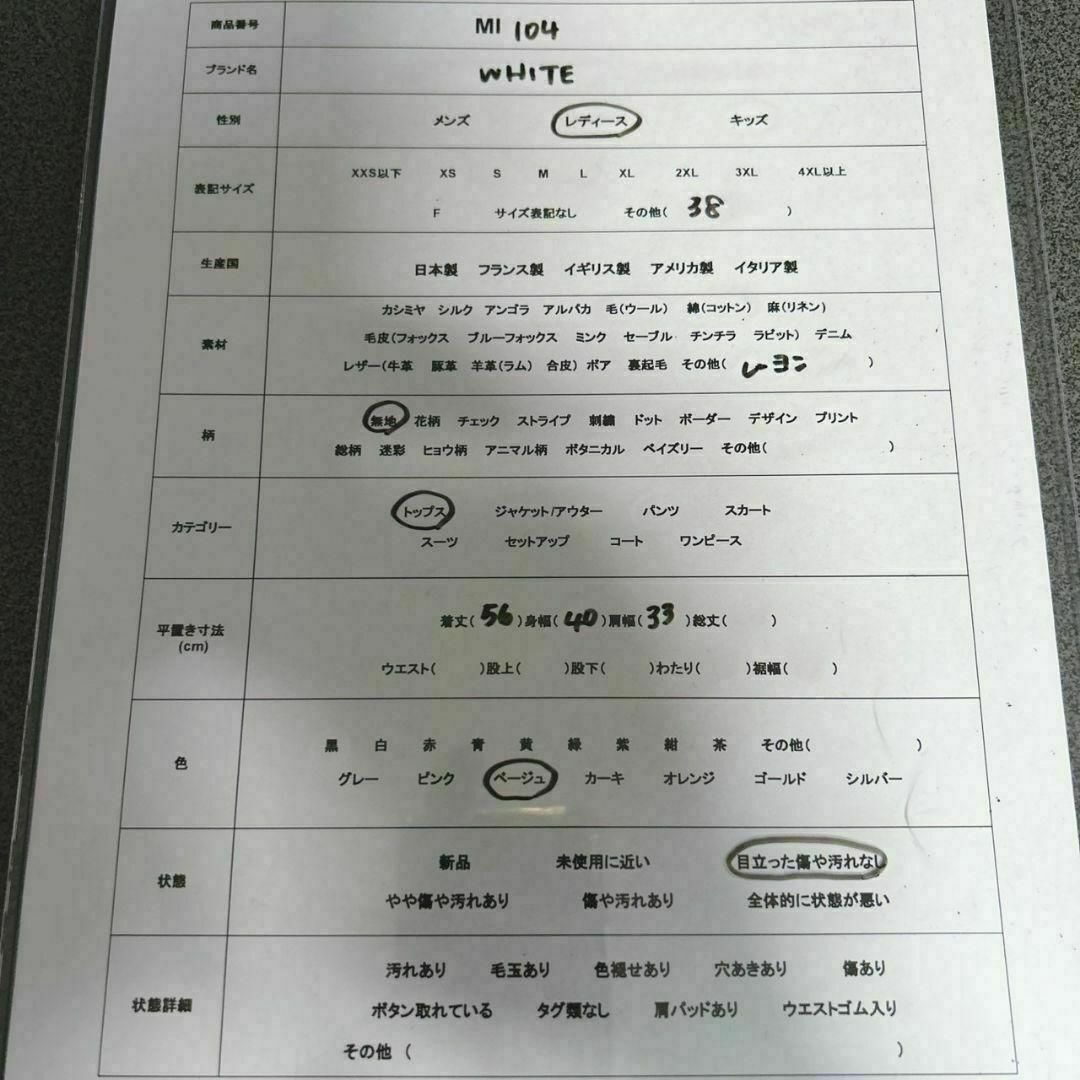 商品番号 MI 104
ブランド名 WHITE
性別 メンズ レディース キッズ
表記サイズ XXS以下 XS S M L XL 2XL 3XL 4XL以上
F サイズ表記なし その他( 38 )
生産国 日本製 フランス製 イギリス製 アメリカ製 イタリア製
素材 カシミヤ シルク アンゴラ アルパカ 毛(ウール) 綿(コットン) 麻(リネン)
毛皮(フォックス ブルーフォックス ミンク セーブル チンチラ ラビット) デニム
レザー(牛革 豚革 羊革(ラム) 合皮) ボア 裏起毛 その他( レーヨン )
柄 無地 花柄 チェック ストライプ 刺繍 ドット ボーダー デザイン プリント
総柄 迷彩 ヒョウ柄 アニマル柄 ボタニカル ペイズリー その他( )
カテゴリー トップス ジャケット/アウター パンツ スカート
スーツ セットアップ コート ワンピース
平置き寸法
(cm)
着丈( 56 )身幅( 40 )肩幅( 33 )総丈( )
ウエスト( )股上( )股下( )わたり( )裾幅( )
色 黒 白 赤 青 黄 緑 紫 紺 茶 その他( )
グレー ピンク ベージュ カーキ オレンジ ゴールド シルバー
状態 新品 未使用に近い 目立った傷や汚れなし
やや傷や汚れあり 傷や汚れあり 全体的に状態が悪い
状態詳細 汚れあり 毛玉あり 色褪せあり 穴あきあり 傷あり
ボタン取れている タグ類なし 肩パッドあり ウエストゴム入り
その他 ( )